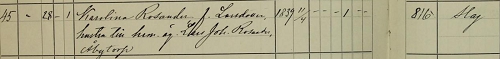 45 - 28 - 1 Karolina Rosander, f. Larsdotter, 1839 11/4 - - 1 - 816 Slag
hustru till hem. äg. Lars Joh. Rosander,
Åbytorp